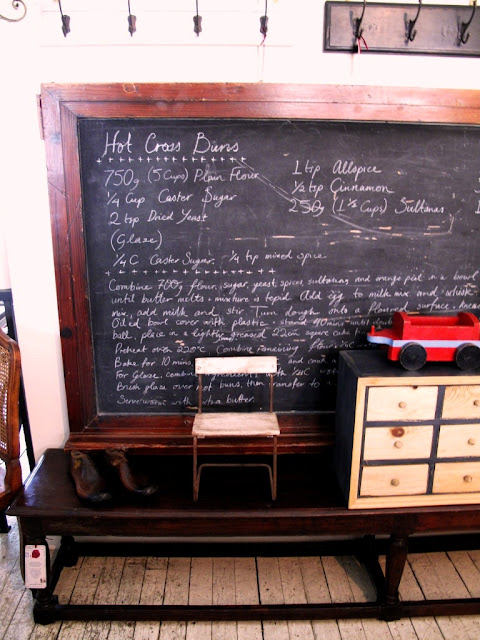 Hot Cross Buns
750g (5 Cups) Plain Flour
1/4 Cup Caster Sugar
2 tsp Dried Yeast
(Glaze)
1/4 C Caster Sugar. 1/4 tsp mixed spice
1 tsp Allspice
1/2 tsp Cinnamon
250g (1 1/2 Cups) Sultanas
Combine 700g flour, sugar, yeast, spices, sultanas, and orange peel in a bowl
until butter melts + mixture is tepid. Add egg to milk mix and whisk
mix, add milk and stir. Turn dough onto a floured surface, knead
Oiled bowl cover with plastic stand 40mins until
ball, place in a lightly greased 22cm square cake
Preheat oven 220°C. Combine remaining flour
Bake for 10 mins and
For Glaze, combine with
Brush glaze over hot buns, then transfer to a
Serve with extra butter.